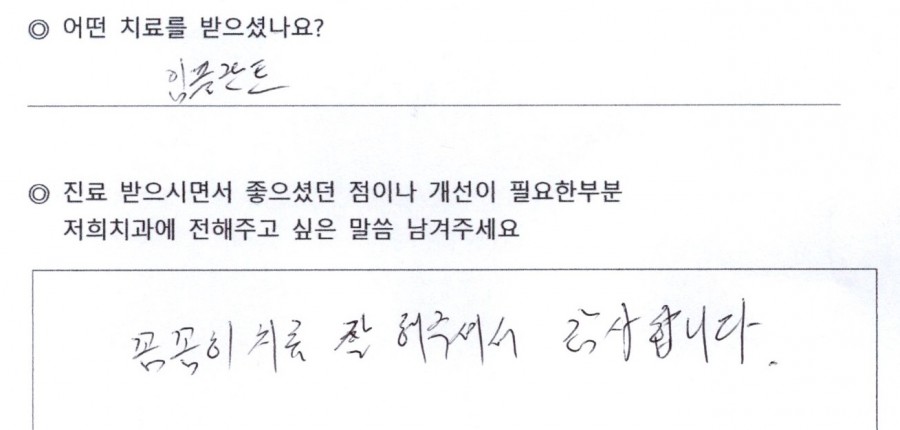 ◎ 어떤 치료를 받으셨나요?
임플란트
◎ 진료 받으시면서 좋으셨던 점이나 개선이 필요한부분
저희치과에 전해주고 싶은 말씀 남겨주세요
꼼꼼히 치료 잘 해주셔서 감사합니다.